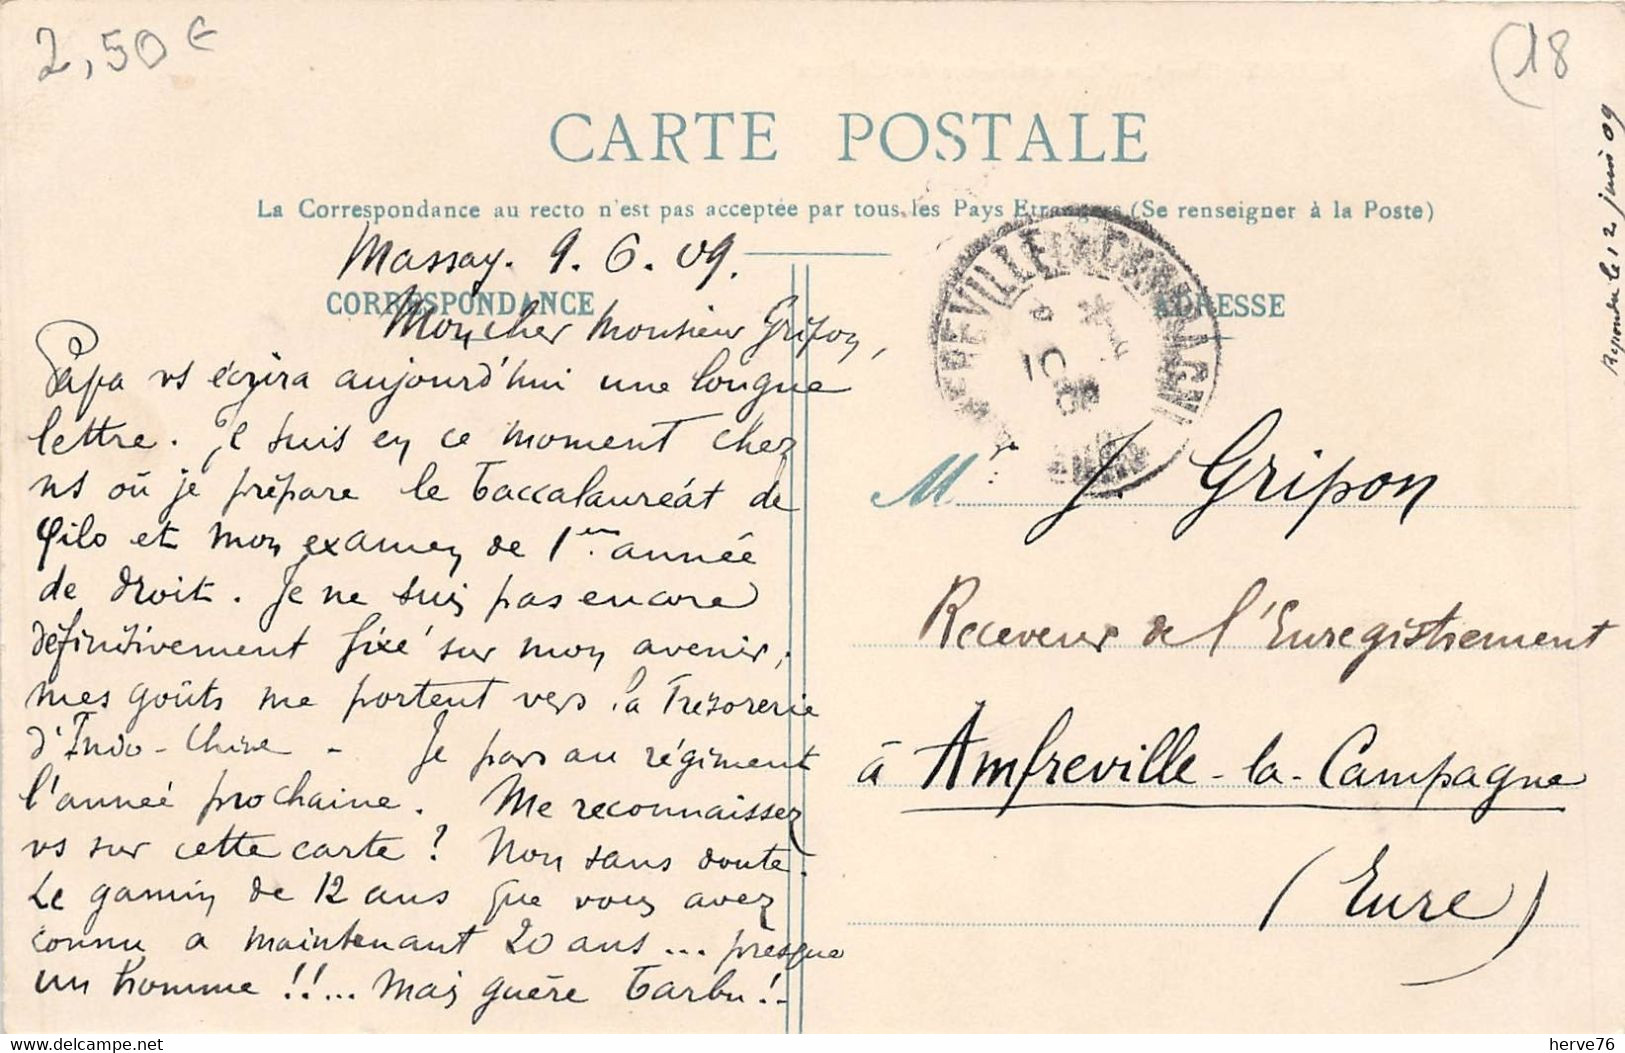 2,50 €
(18
CARTE POSTALE
La Correspondance au recto n'est pas acceptée par tous les Pays Etrangers (Se renseigner à la Poste)
Répondu le 12 juin 09
Massay. 9. 6. 09.
CORRESPONDANCE
Mon cher Monsieur Gripon,
Papa vs écrira aujourd'hui une longue
lettre. Je suis en ce moment chez
ns où je prépare le baccalauréat de
philo et mon examen de 1ère année
de droit. Je ne suis pas encore
définitivement fixé sur mon avenir;
mes goûts me portent vers la Trésorerie
d'Indo-Chine - Je pars au régiment
l'année prochaine. Me reconnaissez
vs sur cette carte? Non sans doute.
Le gamin de 12 ans que vous avez
connu a maintenant 20 ans... presque
un homme!!... Mais guère barbu!-
ADRESSE
Mr. J. Gripon
Receveur de l'Enregistrement
à Amfreville-la-Campagne
(Eure)
www.delcampe.net
herve76